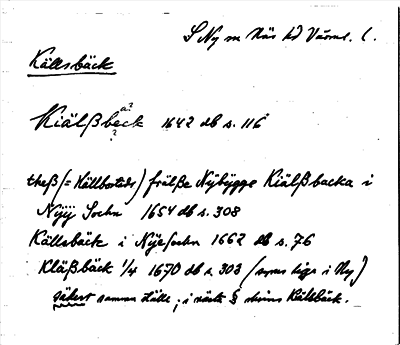 S Ny sn Näs hd Värml. l.
Källsbäck
Kiälßbeck 1642 db s. 116
a?
?
theß (= Hällbotids) frälße Nybygge Kiälßbacka i
Nyy Sochn 1654 db s. 308
Källsbäck i Nyesochn 1662 db s. 76
Kläßbäck 1/4 1670 db s. 303 (synes ligga i Ny)
säkert samma ställe; i nästa § skrives Kälsbäck.